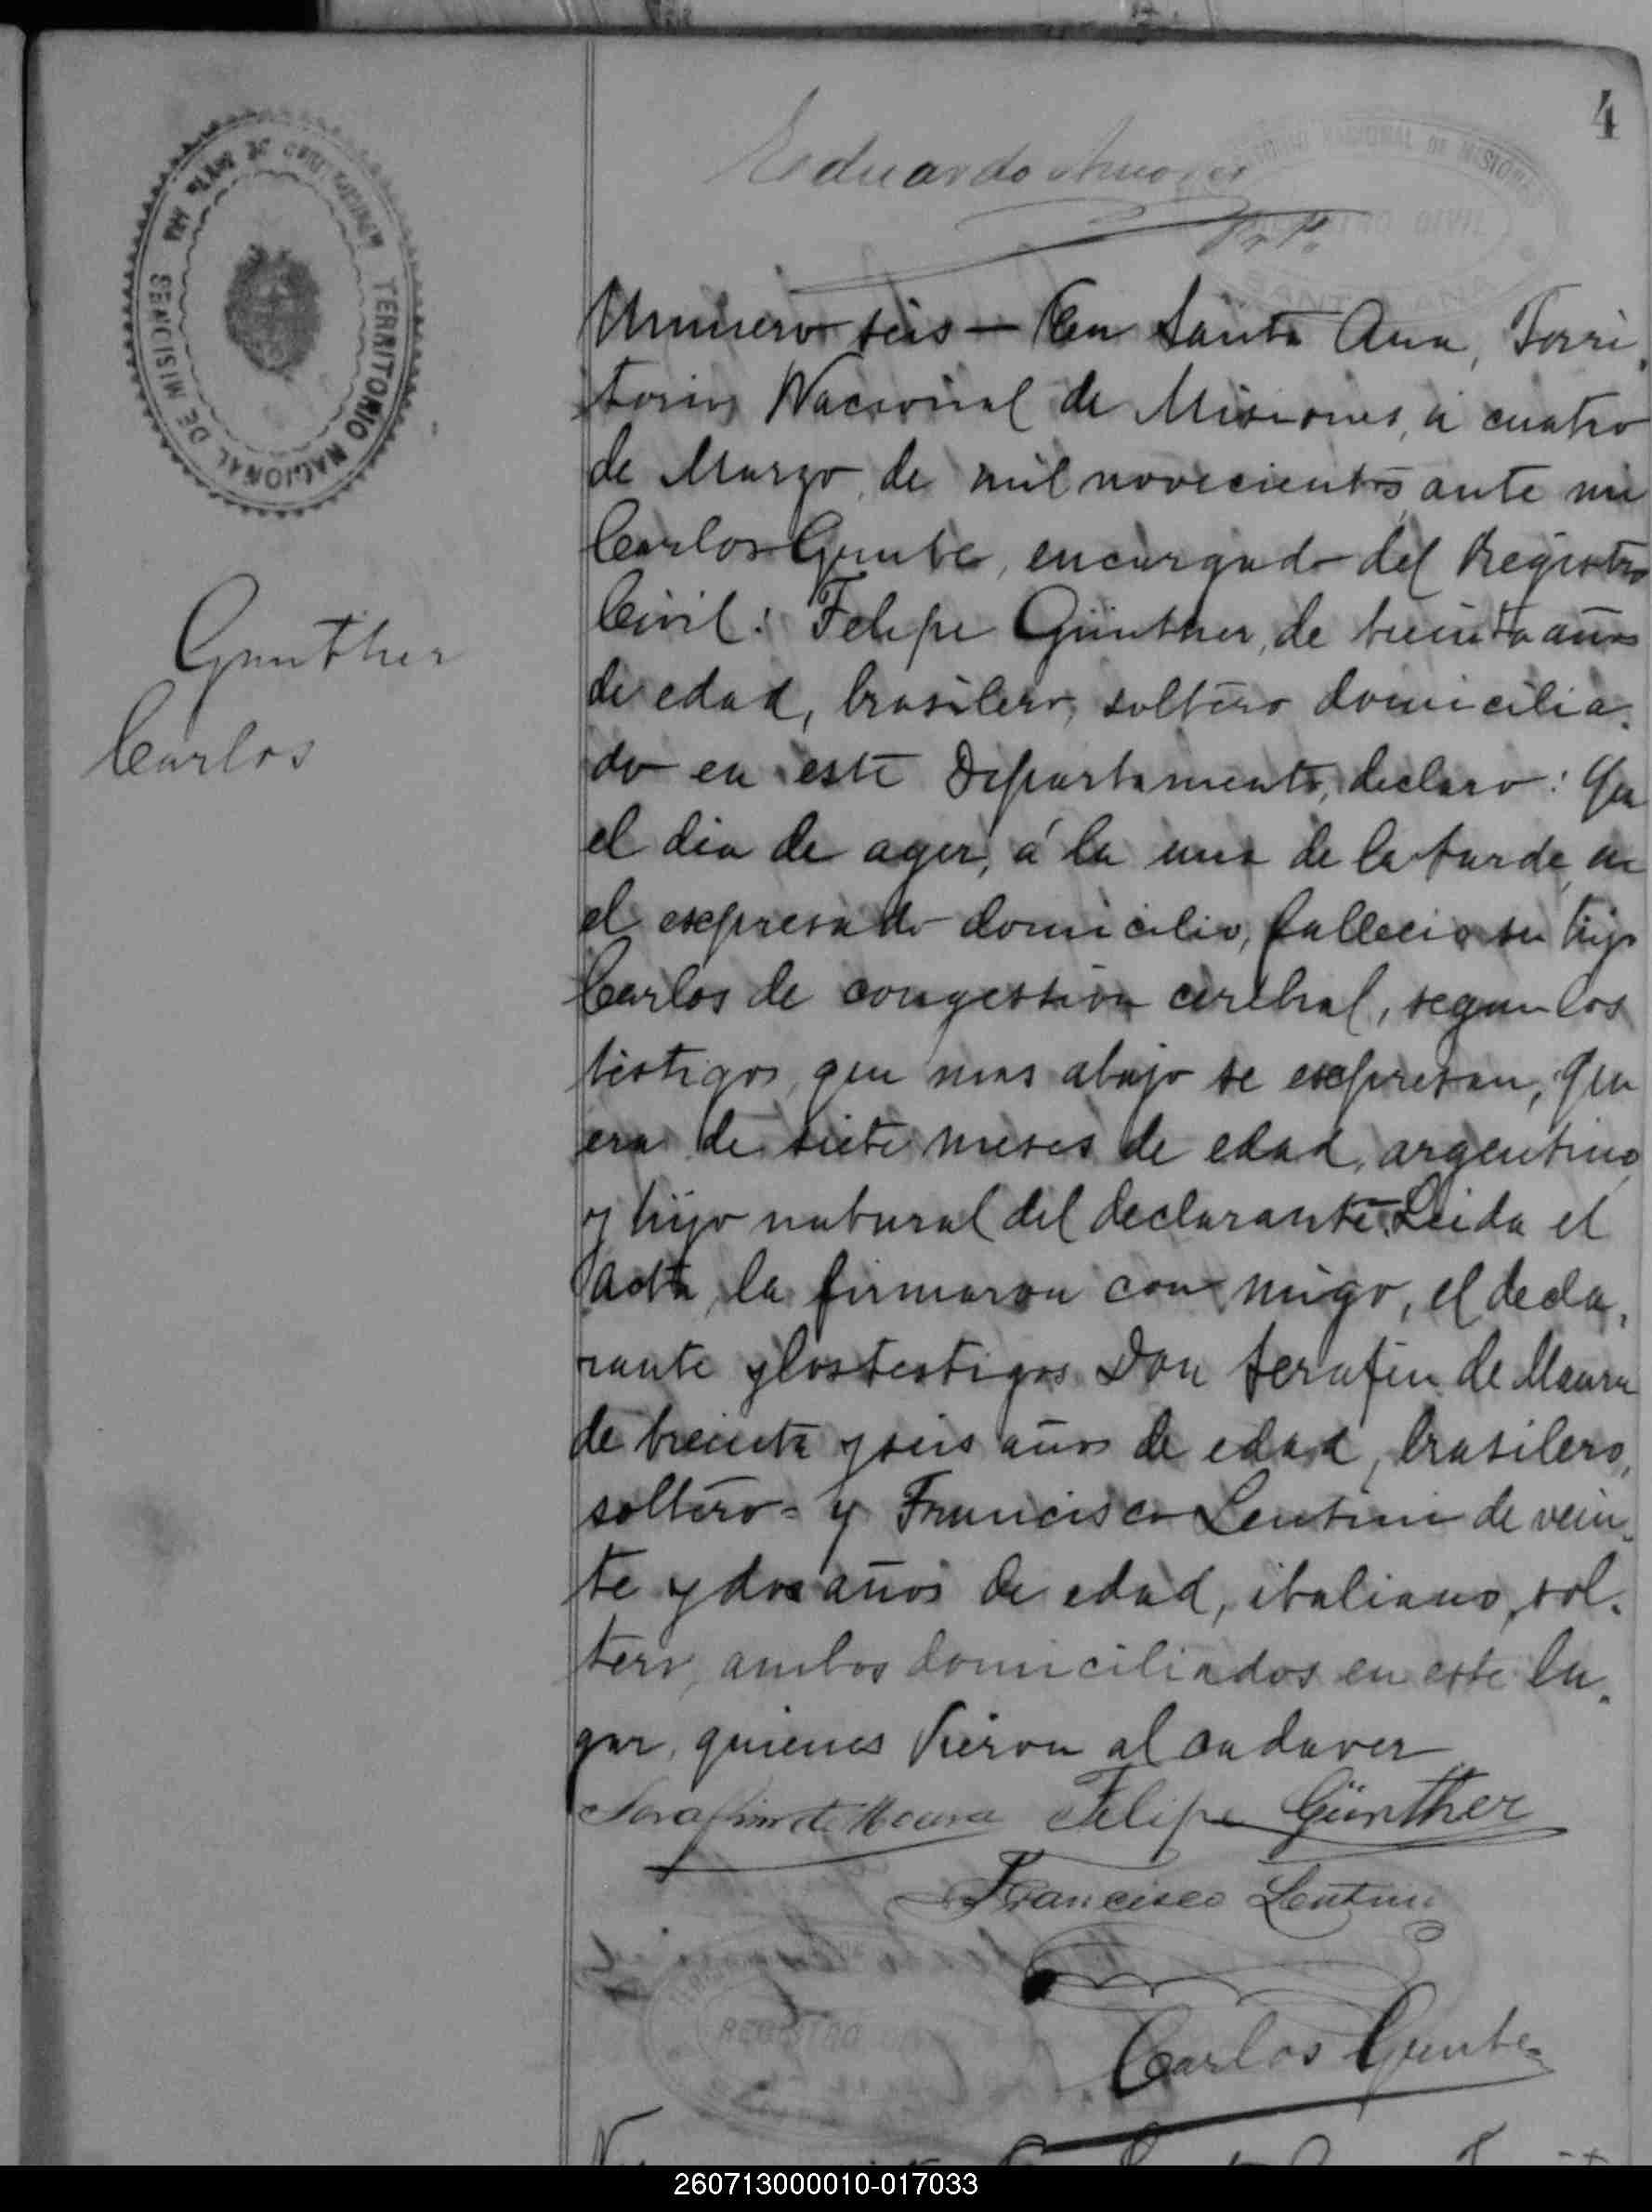 4
Eduardo
Gunther
Carlos
Numero seis — En Santa Ana, Terri-
torio Nacional de Misiones, á cuatro
de Marzo de mil novecientos, ante mi
Carlos Gunte, encargado del Registro
Civil: Felipe Günther, de treinta años
de edad, brasilero, soltero domicilia-
do en este Departamento, declaro: Que
el dia de ayer, á la una de la tarde, en
el expresado domicilio, fallecio su hijo
Carlos de congestion cerebral, segun los
testigos que mas abajo se expresan, que
era de siete meses de edad, argentino
y hijo natural del declarante. Leida el
acta, la firmaron con migo, el decla-
rante y los testigos Don Serafin de Maura
de treinta y seis años de edad, brasilero,
soltero = y Francisco Lentini de vein-
te y dos años de edad, italiano, sol-
tero, ambos domiciliados en este lu-
gar, quienes vieron al cadaver
Serafim de Moura Felipe Günther
Francisco Lentini
Carlos Gunte
TERRITORIO NACIONAL DE MISIONES
REGISTRO
260713000010-017033